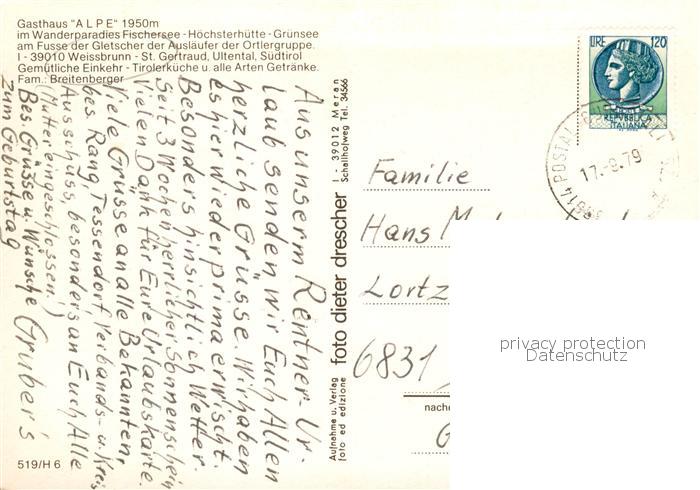 Gasthaus "ALPE" 1950m
im Wanderparadies Fischersee - Höchsterhütte - Grünsee
am Fusse der Gletscher der Ausläufer der Ortlergruppe.
I - 39010 Weissbrunn - St. Gertraud, Ultental, Südtirol
Gemütliche Einkehr - Tirolerküche u. alle Arten Getränke.
Fam.: Breitenberger
Aus unserm Rentner-Ur-
laub senden wir Euch Allen
herzliche Grüsse. Wir haben
es hier wieder prima erwischt.
Besonders hinsichtlich Wetter.
Seit 3 Wochen herrlicher Sonnenschein
Vielen Dank für Eure Urlaubskarte.
Viele Grüsse an alle Bekannten,
bes. Rang, Tessendorf, Verbands- u. Kreis
Ausschuss, besonders an Euch Alle
(Mutter eingeschlossen!)
Bes. Grüsse u. Wünsche Gruber's
zum Geburtstag
519/H 6
Aufnahme u. Verlag
foto ed edizione
foto dieter drescher
I - 39012 Meran
Schallhofweg Tel. 34566
LIRE 120
REPVBBLICA
ITALIANA
POSTAL
17.-9.79
Familie
Hans
Lortz
6831
nache
G
privacy protection
Datenschutz